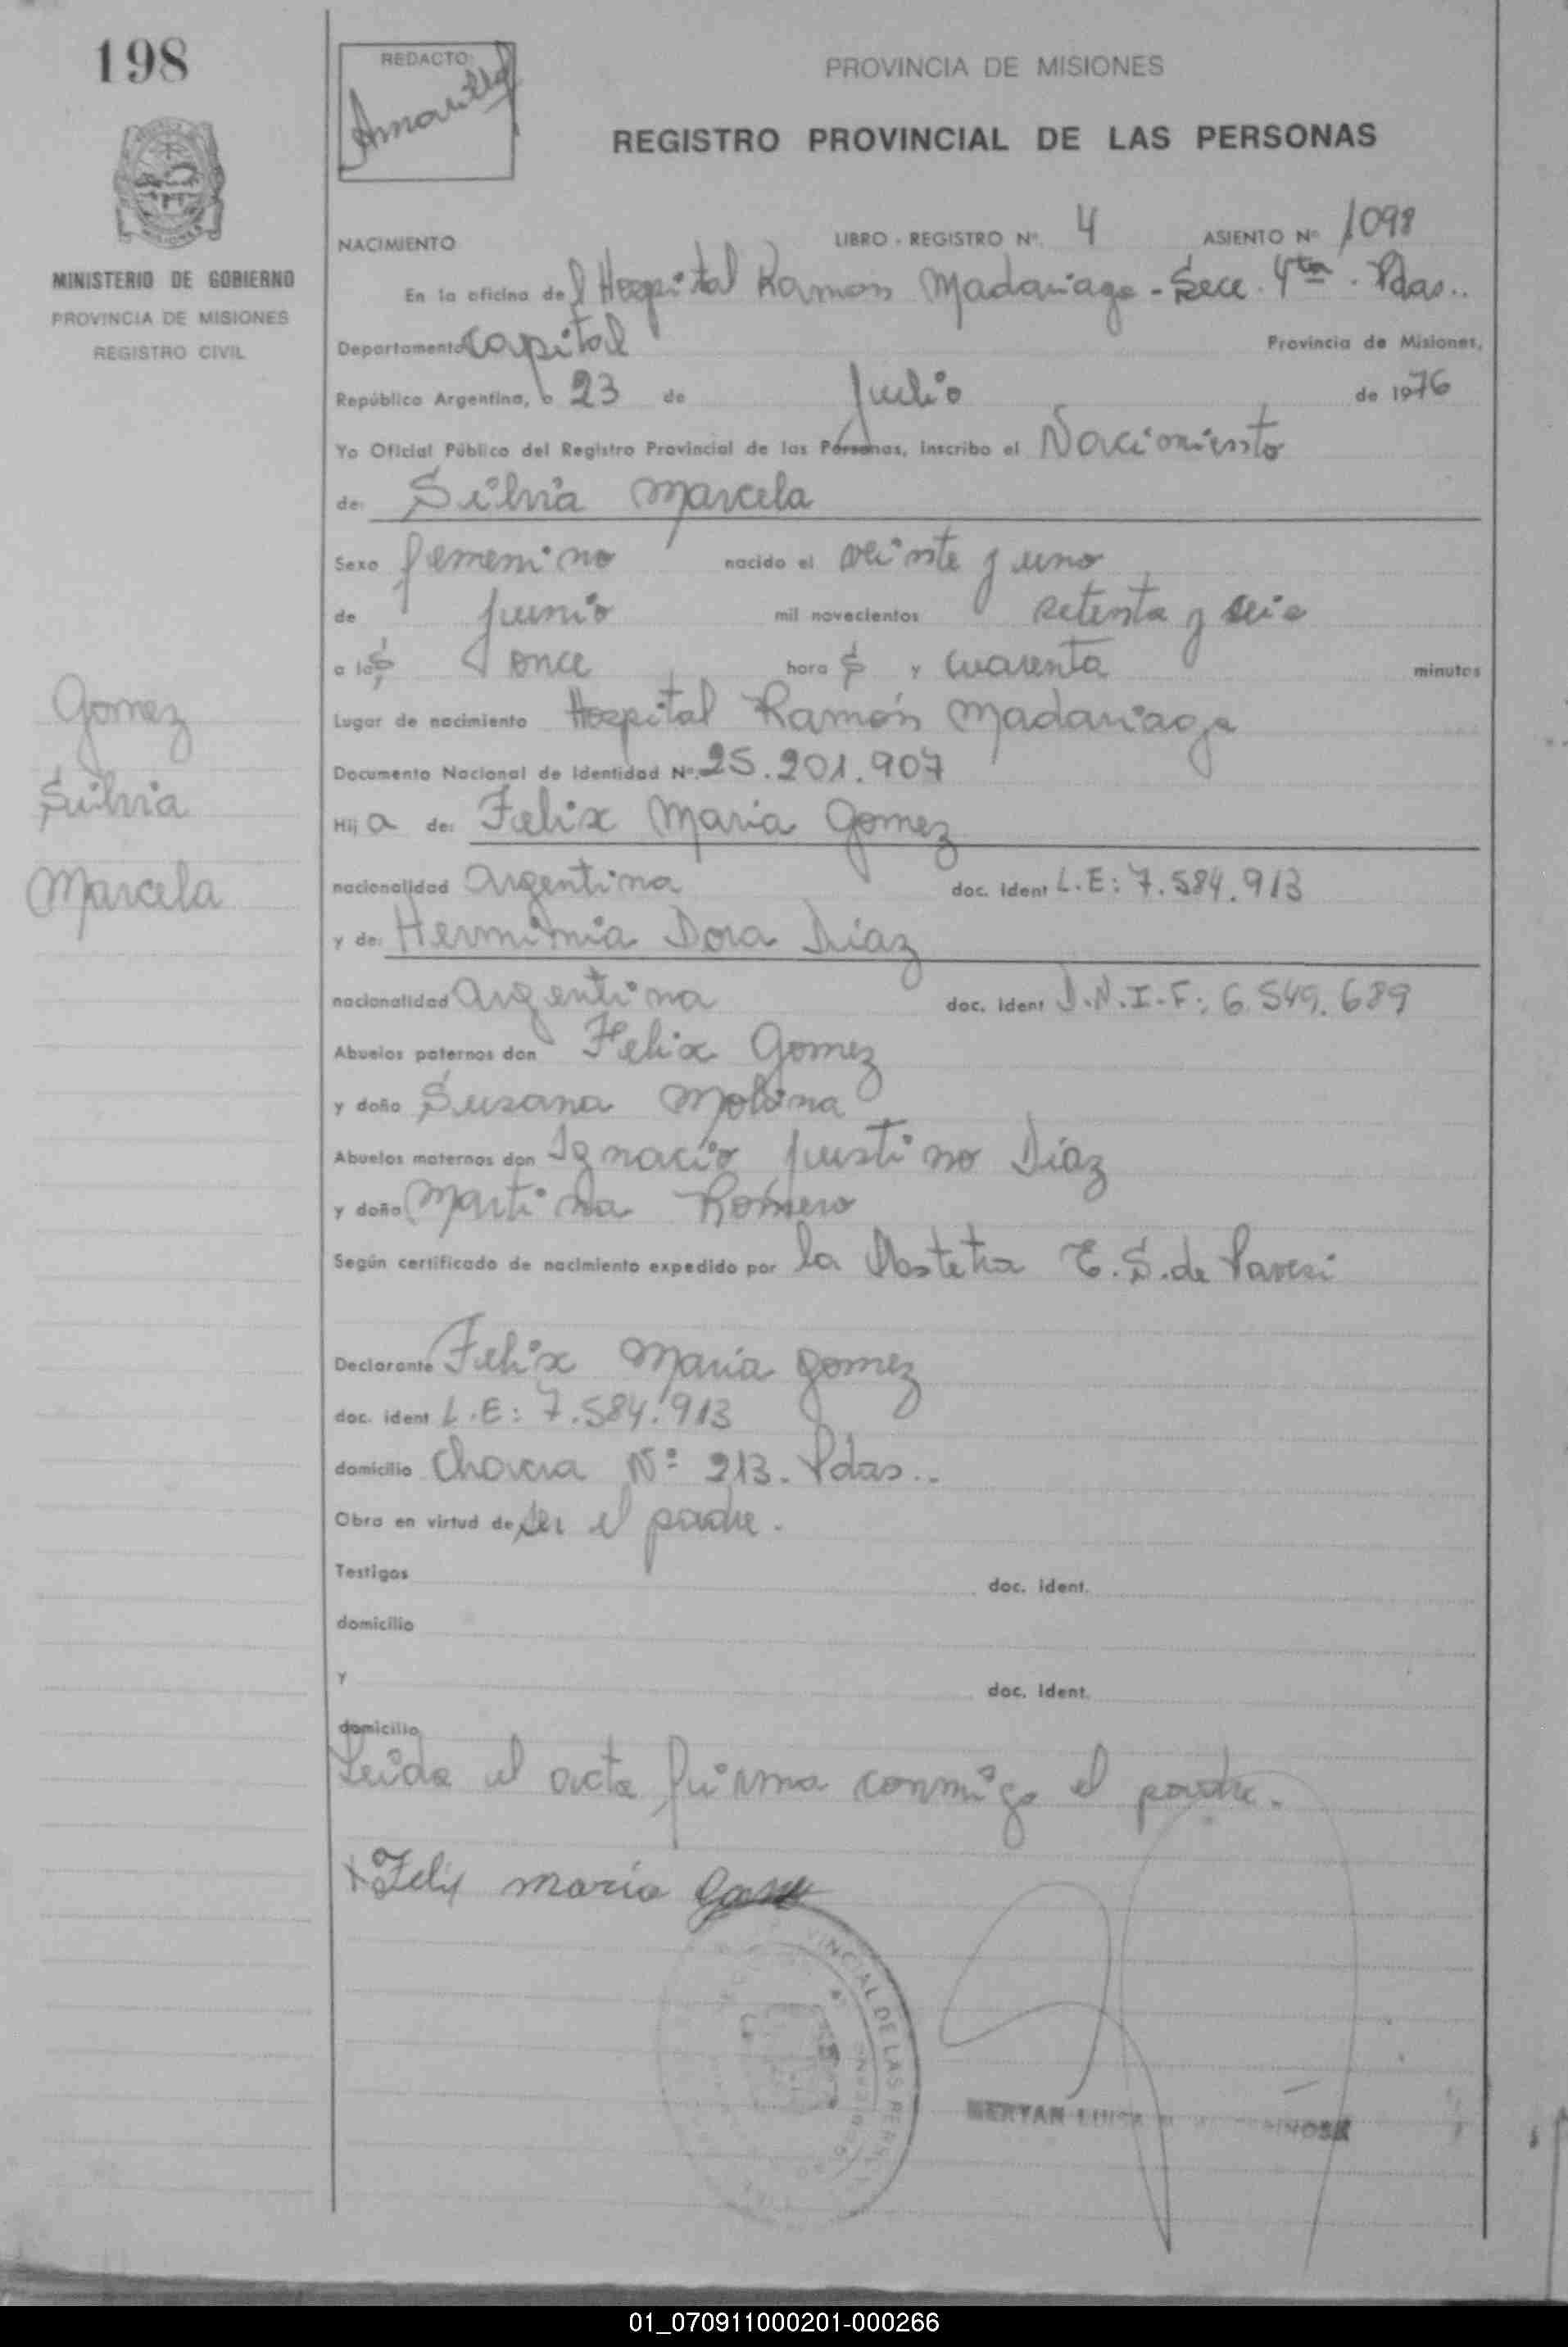 198
REDACTO:
Amarilla
PROVINCIA DE MISIONES
REGISTRO PROVINCIAL DE LAS PERSONAS
MINISTERIO DE GOBIERNO
PROVINCIA DE MISIONES
REGISTRO CIVIL
NACIMIENTO LIBRO - REGISTRO Nº. 4 ASIENTO Nº 1098
En la oficina del Hospital Ramón Madariaga - Secc. 4ta. Pdas..
Departamento Capital Provincia de Misiones,
República Argentina, a 23 de Julio de 1976
Yo Oficial Público del Registro Provincial de las Personas, inscribo el Nacimiento
de: Silvia Marcela
Sexo femenino nacido el veinte y uno
de junio mil novecientos setenta y seis
a las once horas y cuarenta minutos
Lugar de nacimiento Hospital Ramón Madariaga
Documento Nacional de Identidad Nº. 25.201.907
Hija de: Felix Maria Gomez
nacionalidad Argentina doc. ident L.E: 7.584.913
y de: Herminia Dora Díaz
nacionalidad Argentina doc. ident D.N.I.F: 6.549.689
Abuelos paternos don Felix Gomez
y doña Susana Molina
Abuelos maternos don Ignacio Justino Díaz
y doña Martina Romero
Según certificado de nacimiento expedido por la Obstetra E.S. de Pavesi
Declarante Felix María Gomez
doc. ident L.E: 7.584.913
domicilio Chacra Nº 213. Pdas..
Obra en virtud de ser el padre.
Testigos doc. ident.
domicilio
y doc. ident.
domicilio
Leida el acta firma conmigo el padre.
x Felix maria
Gomez
Silvia
Marcela
01_070911000201-000266